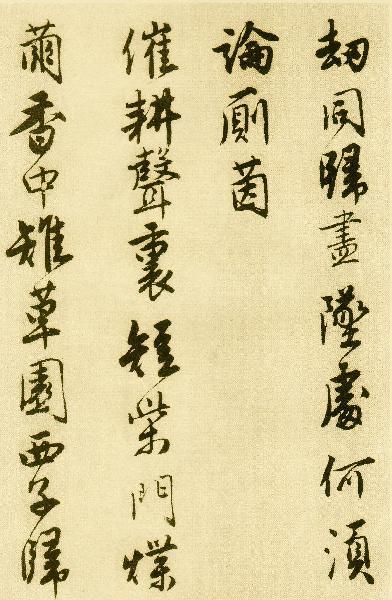 刧同歸盡墜處何須
論厠茵
催耕聲裏短柴門蝶
香中雉草園西子歸